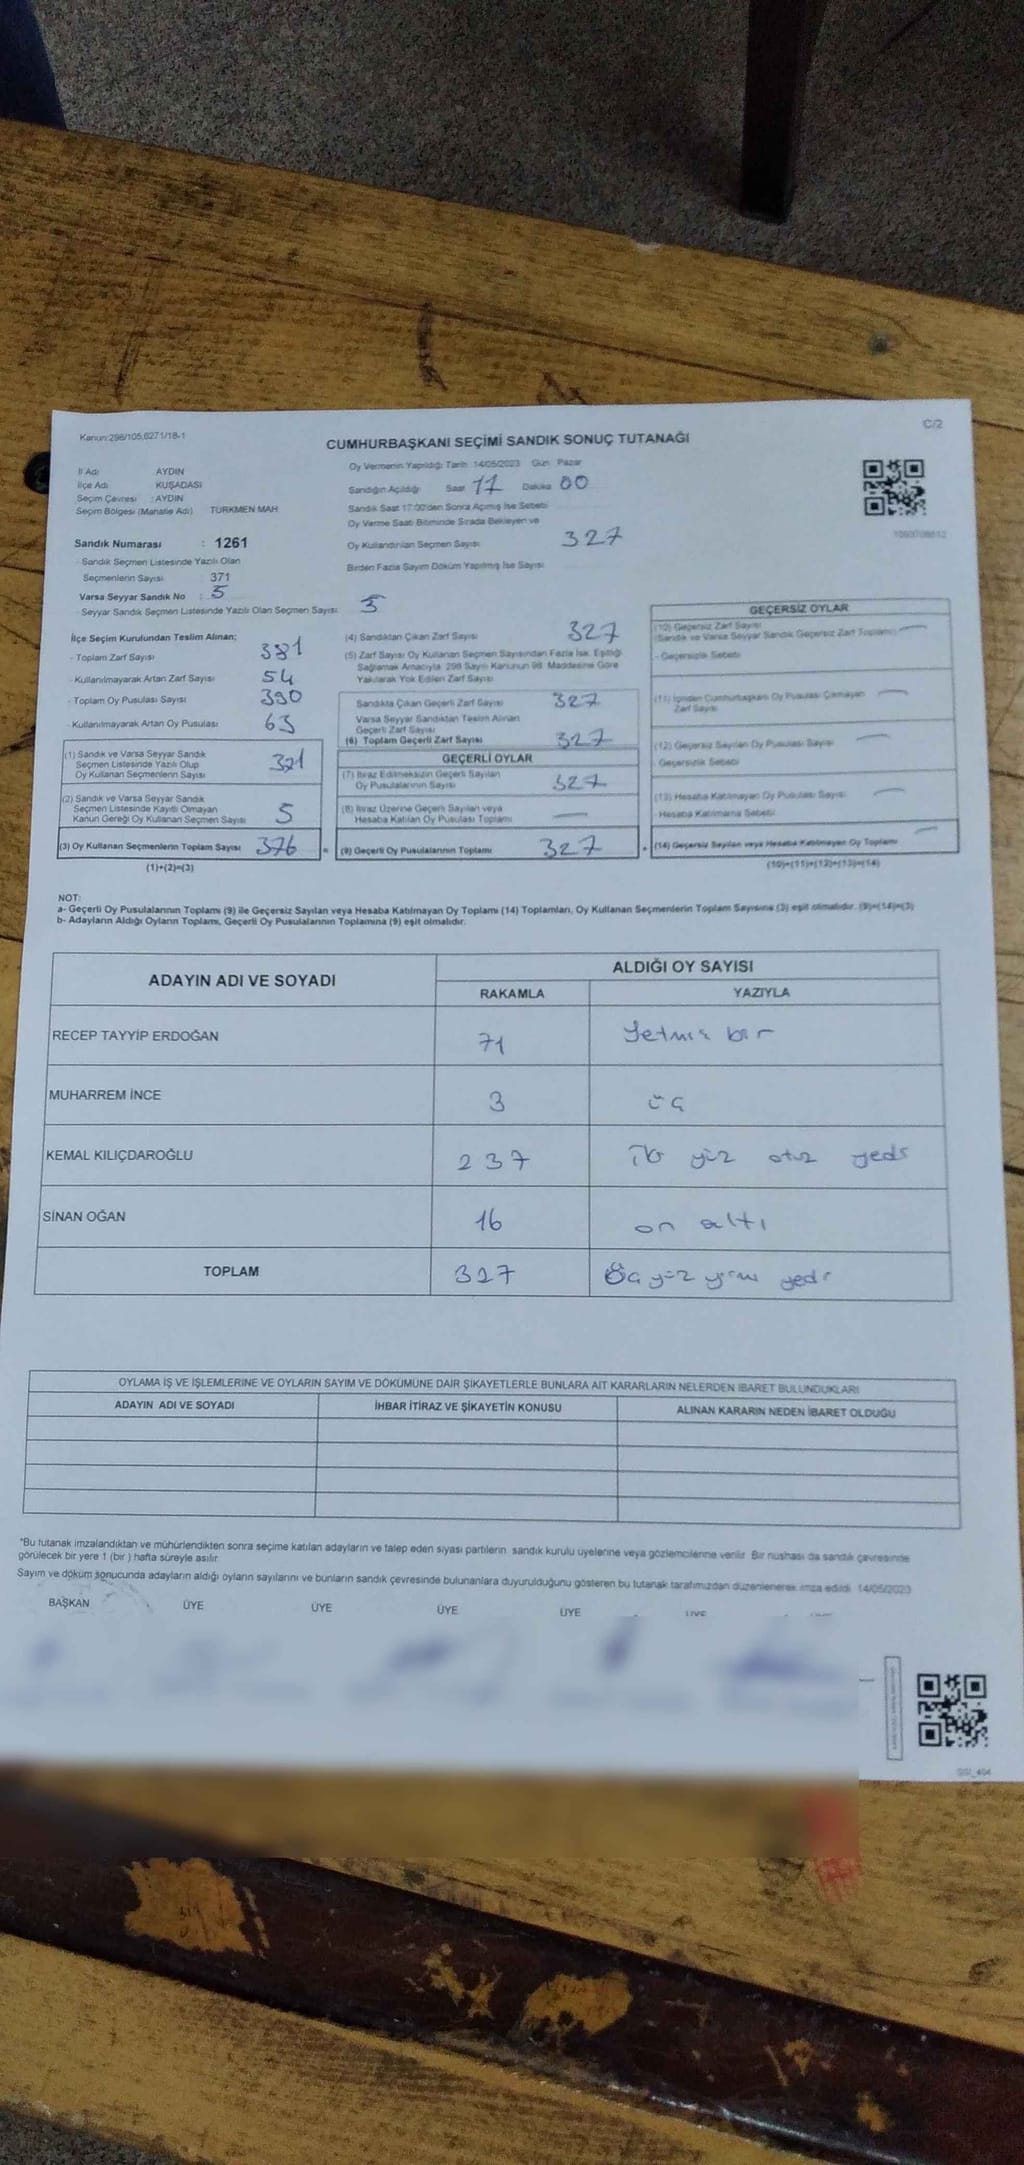 Kanun:298/105,6271/18-1
C/2
CUMHURBAŞKANI SEÇİMİ SANDIK SONUÇ TUTANAĞI
İl Adı AYDIN
İlçe Adı KUŞADASI
Seçim Çevresi : AYDIN
Seçim Bölgesi (Mahalle Adı) TÜRKMEN MAH.
Oy Vermenin Yapıldığı Tarih: 14/05/2023 Gün Pazar
Sandığın Açıldığı Saat 17 Dakika 00
Sandık Saat 17:00'den Sonra Açılmış İse Sebebi
Oy Verme Saati Bitiminde Sırada Bekleyen ve
Oy Kullandırılan Seçmen Sayısı 327
Birden Fazla Sayım Döküm Yapılmış İse Sayısı
Sandık Numarası : 1261
- Sandık Seçmen Listesinde Yazılı Olan
Seçmenlerin Sayısı 371
Varsa Seyyar Sandık No : 5
- Seyyar Sandık Seçmen Listesinde Yazılı Olan Seçmen Sayısı 5
İlçe Seçim Kurulundan Teslim Alınan;
- Toplam Zarf Sayısı 381
- Kullanılmayarak Artan Zarf Sayısı 54
- Toplam Oy Pusulası Sayısı 390
- Kullanılmayarak Artan Oy Pusulası 63
(1) Sandık ve Varsa Seyyar Sandık
Seçmen Listesinde Yazılı Olup
Oy Kullanan Seçmenlerin Sayısı
(2) Sandık ve Varsa Seyyar Sandık
Seçmen Listesinde Kayıtlı Olmayan
Kanun Gereği Oy Kullanan Seçmen Sayısı 5
(3) Oy Kullanan Seçmenlerin Toplam Sayısı 376 =
(1)+(2)=(3)
(4) Sandıktan Çıkan Zarf Sayısı 327
(5) Zarf Sayısı Oy Kullanan Seçmen Sayısından Fazla İse, Eşitliği
Sağlamak Amacıyla 298 Sayılı Kanunun 98. Maddesine Göre
Yakılarak Yok Edilen Zarf Sayısı
Sandıkta Çıkan Geçerli Zarf Sayısı 327
Varsa Seyyar Sandıktan Teslim Alınan
Geçerli Zarf Sayısı
(6) Toplam Geçerli Zarf Sayısı 327
GEÇERLİ OYLAR
(7) İtiraz Edilmeksizin Geçerli Sayılan
Oy Pusulalarının Sayısı 327
(8) İtiraz Üzerine Geçerli Sayılan veya
Hesaba Katılan Oy Pusulası Toplamı —
(9) Geçerli Oy Pusulalarının Toplamı 327 +
GEÇERSİZ OYLAR
(10) Geçersiz Zarf Sayısı
(Sandık ve Varsa Seyyar Sandık Geçersiz Zarf Toplamı) —
- Geçersizlik Sebebi
(11) İçinden Cumhurbaşkanı Oy Pusulası Çıkmayan —
Zarf Sayısı
(12) Geçersiz Sayılan Oy Pusulası Sayısı —
- Geçersizlik Sebebi
(13) Hesaba Katılmayan Oy Pusulası Sayısı —
Hesaba Katılmama Sebebi
(14) Geçersiz Sayılan veya Hesaba Katılmayan Oy Toplamı —
(10)+(11)+(12)+(13)=(14)
NOT:
a- Geçerli Oy Pusulalarının Toplamı (9) ile Geçersiz Sayılan veya Hesaba Katılmayan Oy Toplamı (14) Toplamları, Oy Kullanan Seçmenlerin Toplam Sayısına (3) eşit olmalıdır. (9)+(14)=(3)
b- Adayların Aldığı Oyların Toplamı, Geçerli Oy Pusulalarının Toplamına (9) eşit olmalıdır.
ADAYIN ADI VE SOYADI ALDIĞI OY SAYISI
RAKAMLA YAZIYLA
RECEP TAYYİP ERDOĞAN 71 Yetmiş bir
MUHARREM İNCE 3 üç
KEMAL KILIÇDAROĞLU 237 iki yüz otuz yedi
SİNAN OĞAN 16 on altı
TOPLAM 327 Üç yüz yirmi yedi
OYLAMA İŞ VE İŞLEMLERİNE VE OYLARIN SAYIM VE DÖKÜMÜNE DAİR ŞİKAYETLERLE BUNLARA AİT KARARLARIN NELERDEN İBARET BULUNDUKLARI
ADAYIN ADI VE SOYADI İHBAR İTİRAZ VE ŞİKAYETİN KONUSU ALINAN KARARIN NEDEN İBARET OLDUĞU
*Bu tutanak imzalandıktan ve mühürlendikten sonra seçime katılan adayların ve talep eden siyasi partilerin sandık kurulu üyelerine veya gözlemcilerine verilir. Bir nüshası da sandık çevresinde
görülecek bir yere 1 (bir) hafta süreyle asılır.
Sayım ve döküm sonucunda adayların aldığı oyların sayılarını ve bunların sandık çevresinde bulunanlara duyurulduğunu gösteren bu tutanak tarafımızdan düzenlenerek imza edildi. 14/05/2023
BAŞKAN ÜYE ÜYE ÜYE ÜYE ÜYE